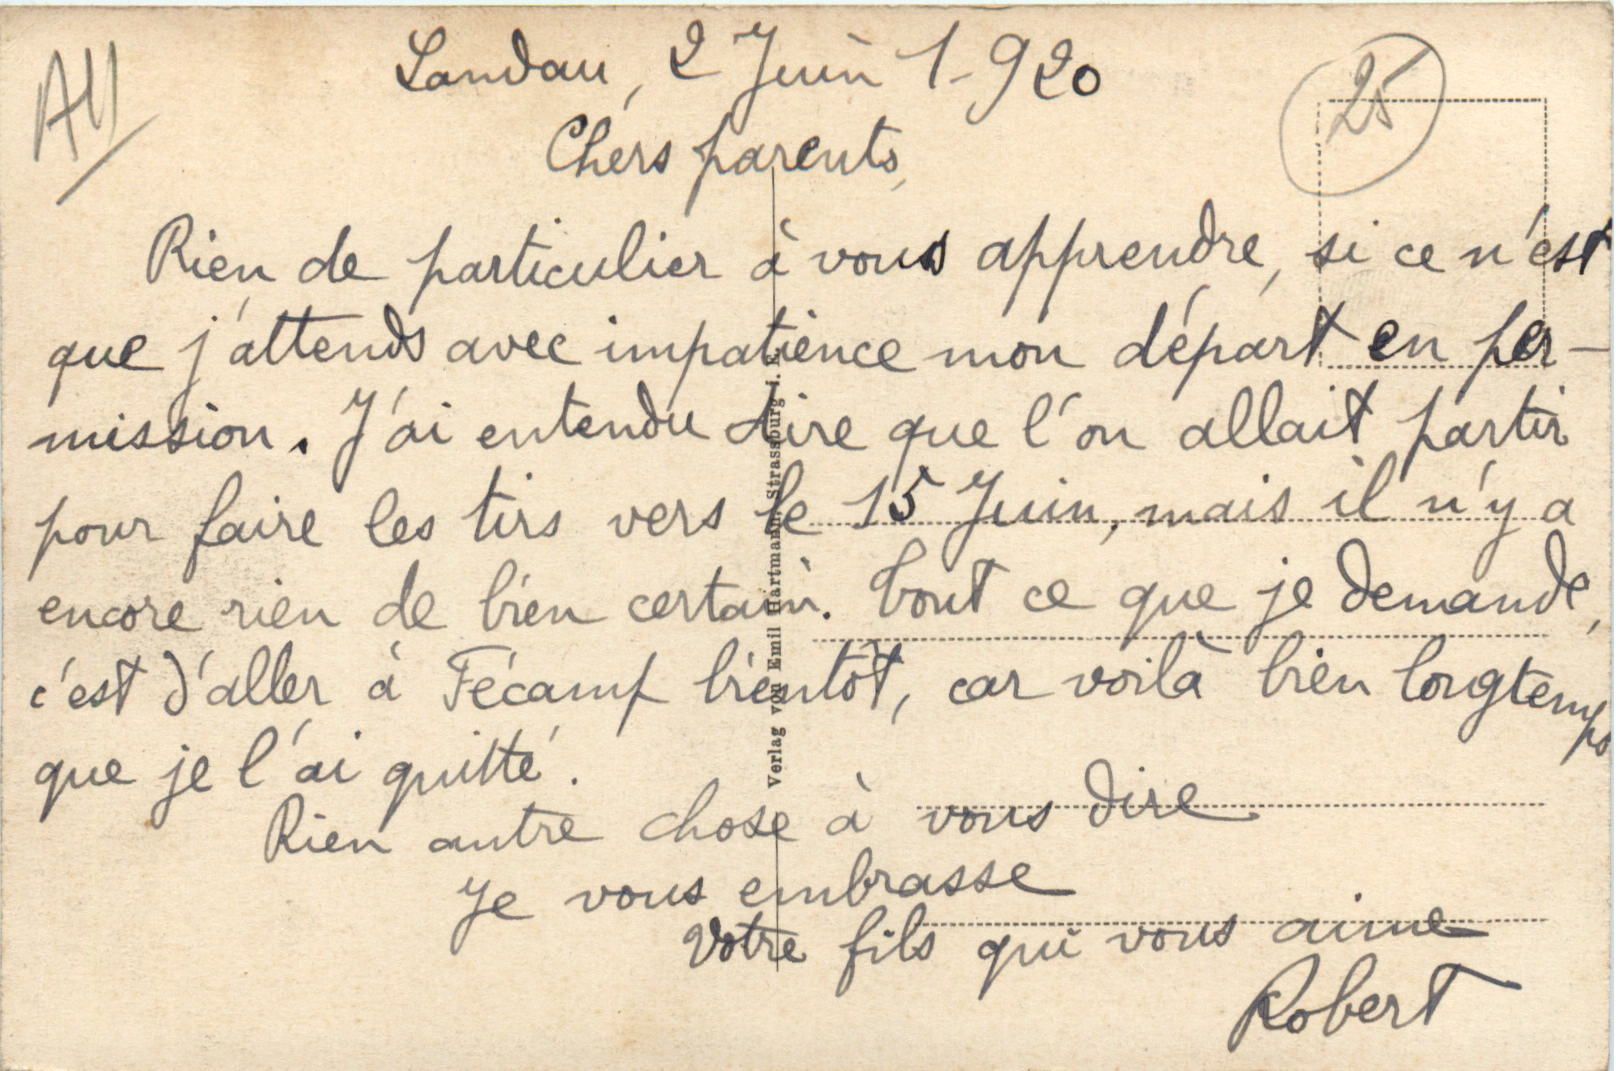 All
25
Landau, 2 Juin 1-920
Chers parents,
Rien de particulier à vous apprendre, si ce n'est
que j'attends avec impatience mon départ en per-
mission. J'ai entendu dire que l'on allait partir
pour faire les tirs vers le 15 Juin, mais il n'y a
encore rien de bien certain. Tout ce que je demande,
c'est d'aller à Fécamp bientôt, car voilà bien longtemps
que je l'ai quitté.
Rien autre chose à vous dire
Je vous embrasse
Votre fils qui vous aime
Robert
Verlag von Emil Hartmann, Strassburg i. E.